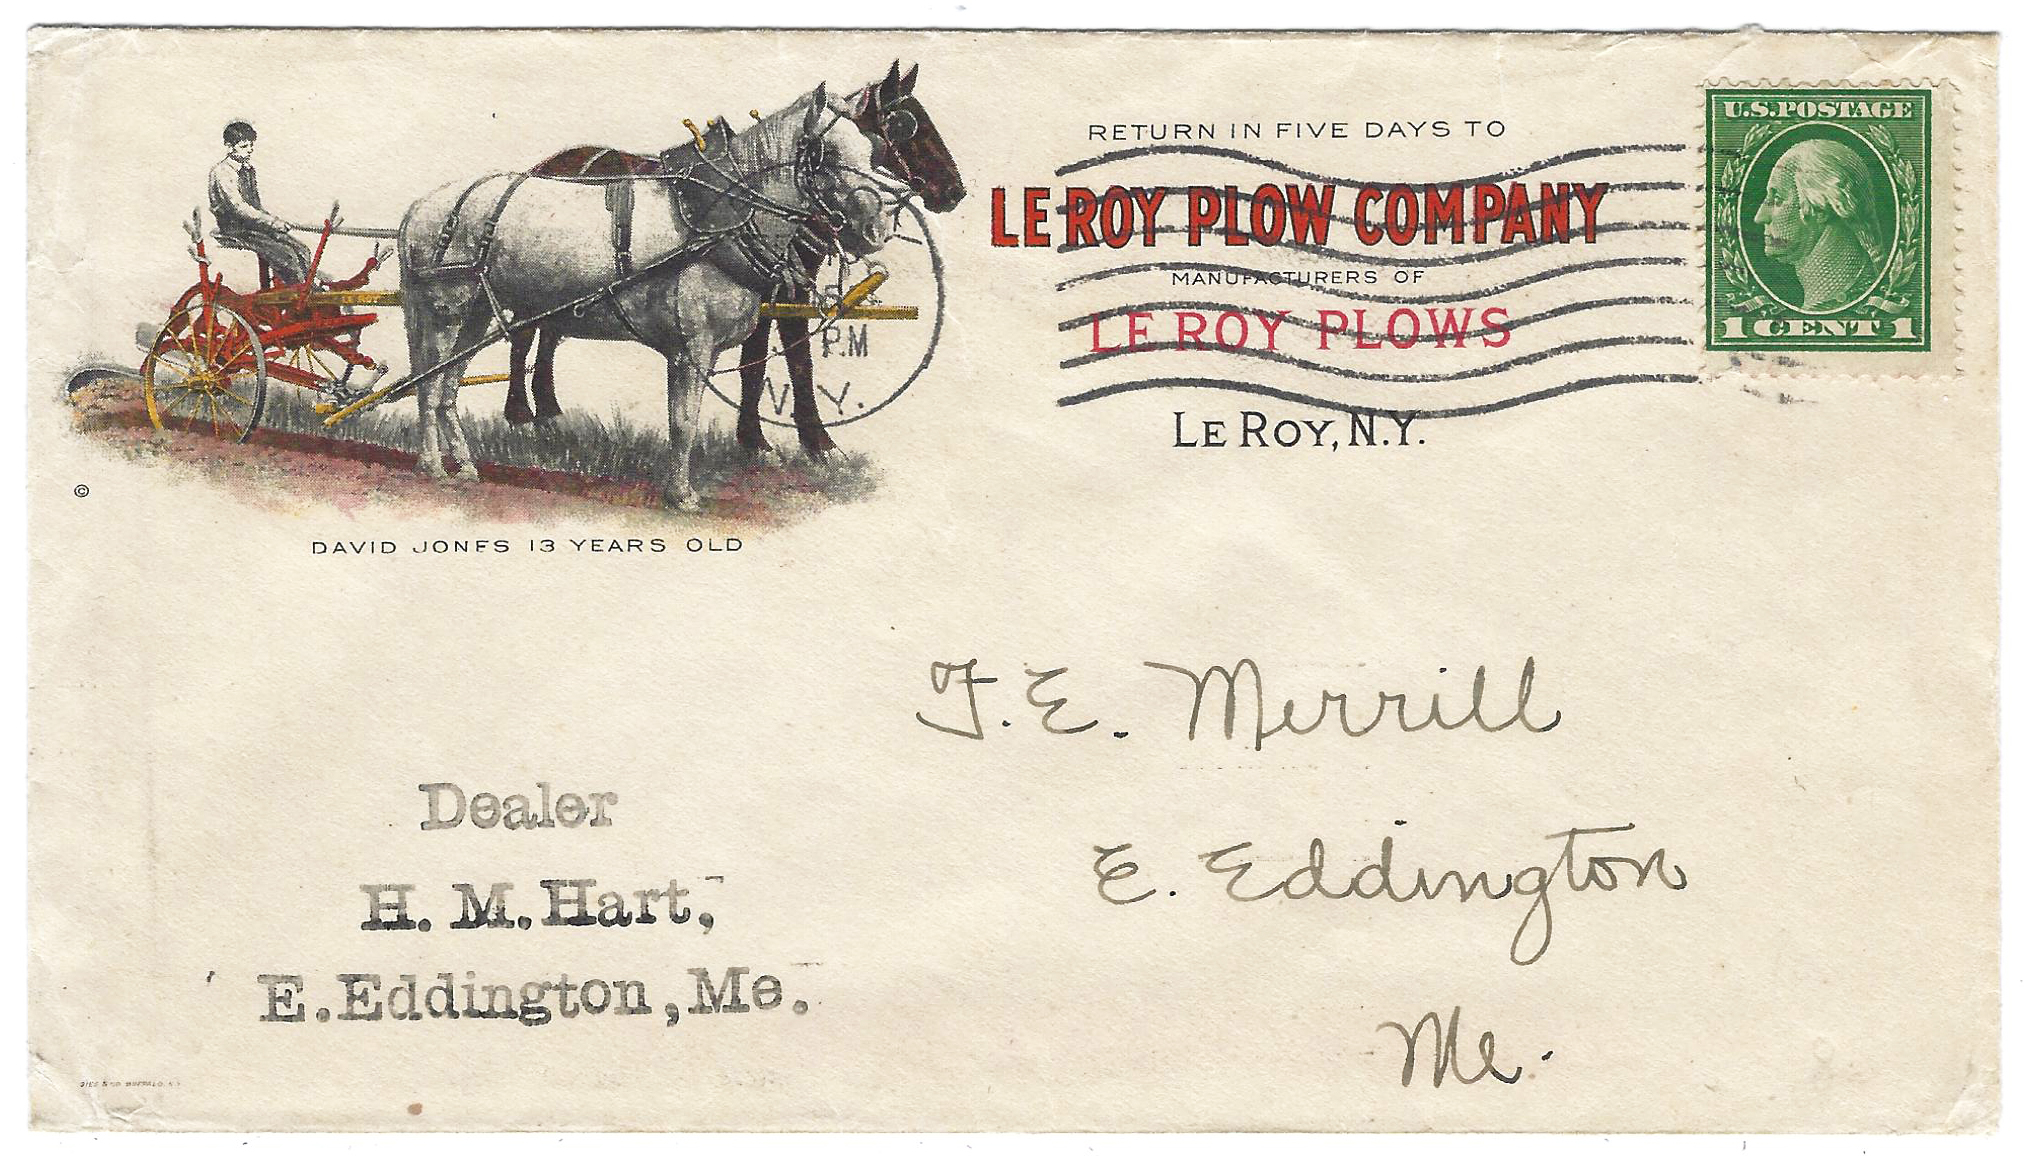 RETURN IN FIVE DAYS TO
LE ROY PLOW COMPANY
MANUFACTURERS OF
LE ROY PLOWS
LE ROY, N.Y.
U.S. POSTAGE
1 CENT 1
P.M
N.Y.
©
DAVID JONES 13 YEARS OLD
F. E. Merrill
E. Eddington
Me.
Dealer
H. M. Hart,
E. Eddington, Me.